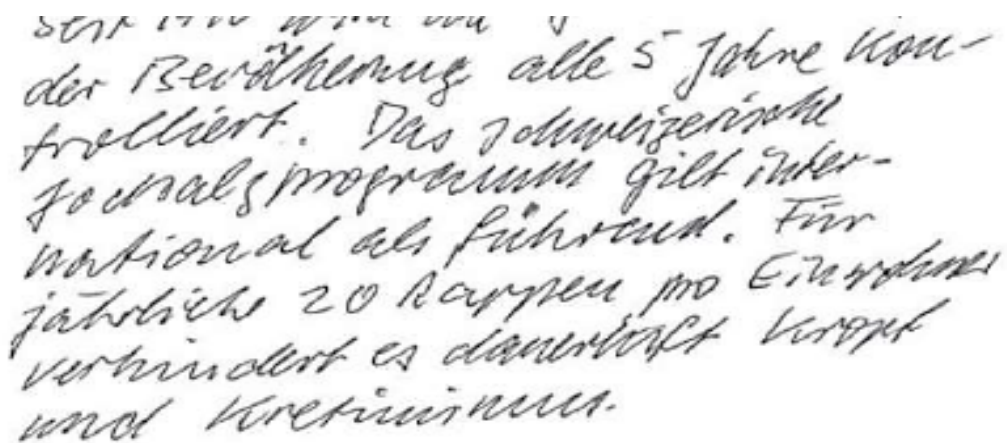 der Bevölkerung alle 5 Jahre kon-
trolliert. Das schweizerische
Jodsalzprogramm gilt inter-
national als führend. Für
jährliche 20 Rappen pro Einwohner
verhindert es dauerhaft Kropf
und Kretinismus.